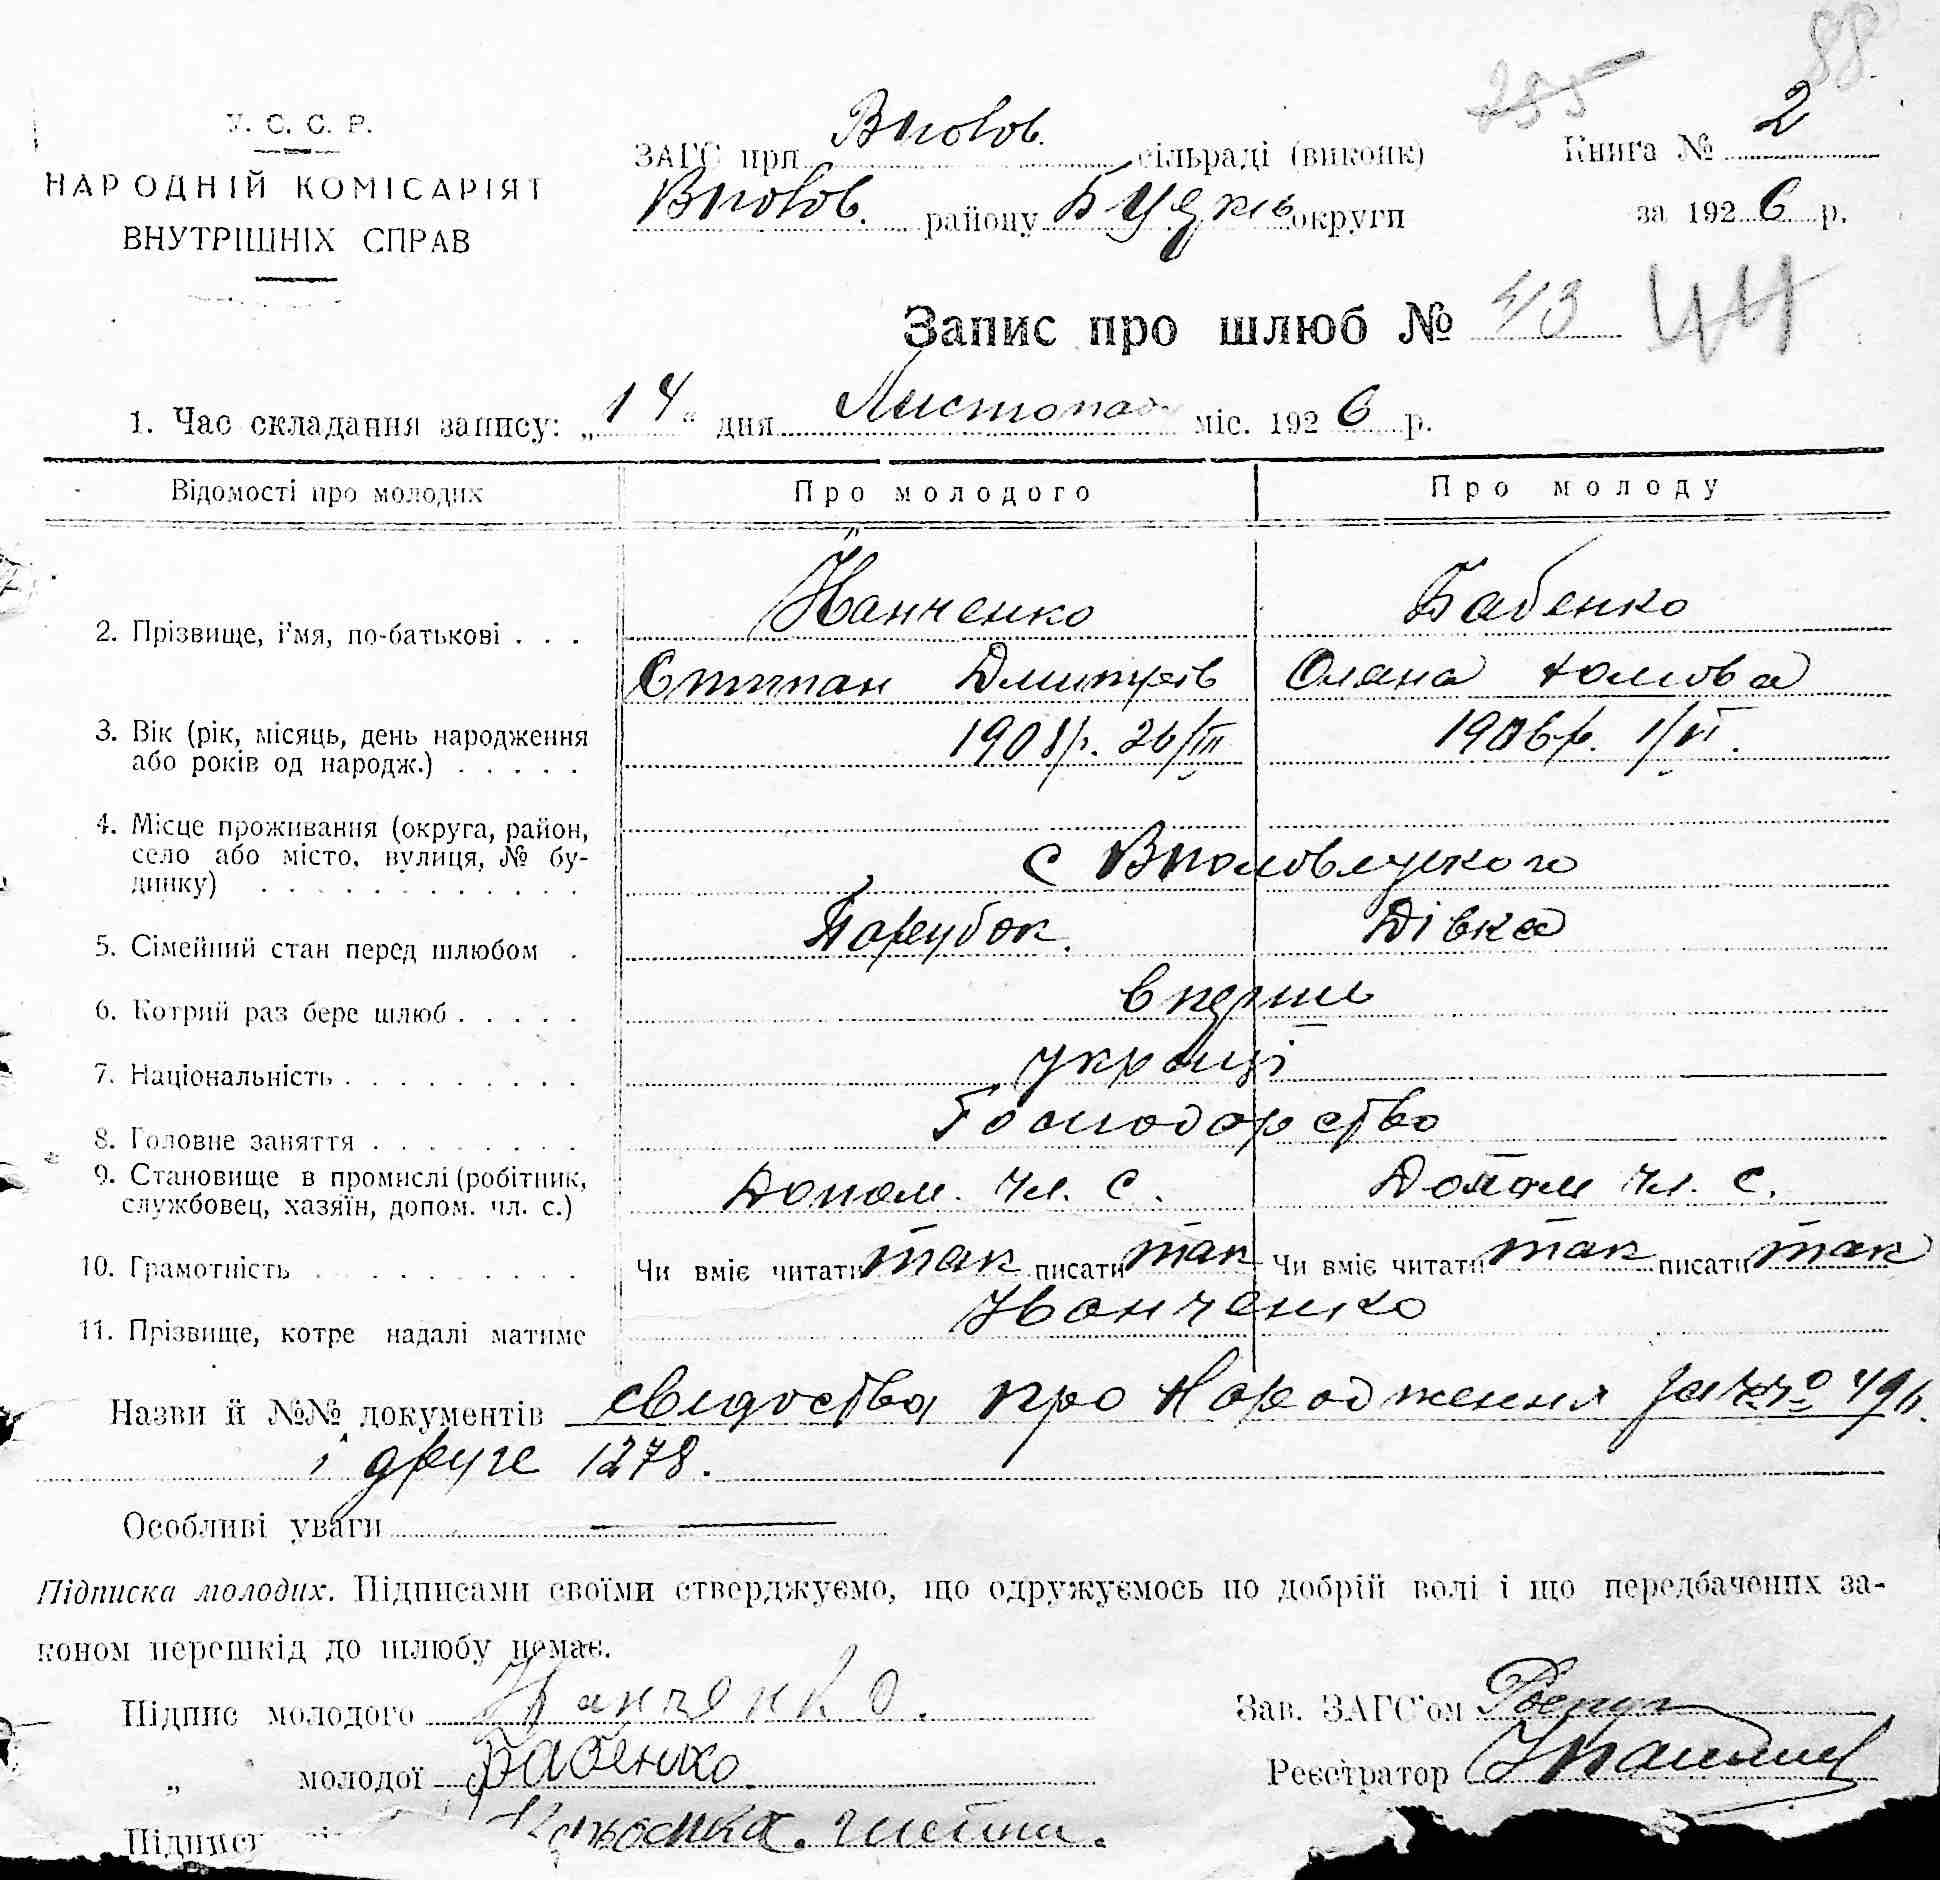 88
285
У. С. С. Р.
НАРОДНІЙ КОМІСАРІЯТ
ВНУТРІШНІХ СПРАВ
ЗАГС при сільраді (виконк)
району округи
Книга № 2
за 1926 р.
Запис про шлюб № 43 44
1. Час складання запису: „14“ дня Листопад міс. 1926 р.
Відомості про молодих Про молодого Про молоду
2. Прізвище, ім'я, по-батькові . . . Іванченко Бабенко
Дмитрів Оляна
3. Вік (рік, місяць, день народження 1908р. 26/III 1906р. 1/VI.
або років од народж.) . . . . .
4. Місце проживання (округа, район,
село або місто, вулиця, № бу- с
динку) . . . . . . . . . . . .
5. Сімейний стан перед шлюбом . Парубок. Дівка
6. Котрий раз бере шлюб . . . . . вперше
7. Національність . . . . . . . . . україці
8. Головне заняття . . . . . . . . Господарство
9. Становище в промислі (робітник, Допом. чл. с. Допом чл. с.
службовец, хазяїн, допом. чл. с.)
10. Грамотність . . . . . . . . . . Чи вміє читати так писати так Чи вміє читати так писати так
11. Прізвище, котре надалі матиме Іванченко
Назви й №№ документів свідоства про Народження за
і друге 1278.
Особливі уваги —
Підписка молодих. Підписами своїми стверджуємо, що одружуємось по добрій волі і що передбачених за-
коном перешкід до шлюбу немає.
Підпис молодого Іванченко. Зав. ЗАГС'ом
„ молодої Бабенко Реєстратор